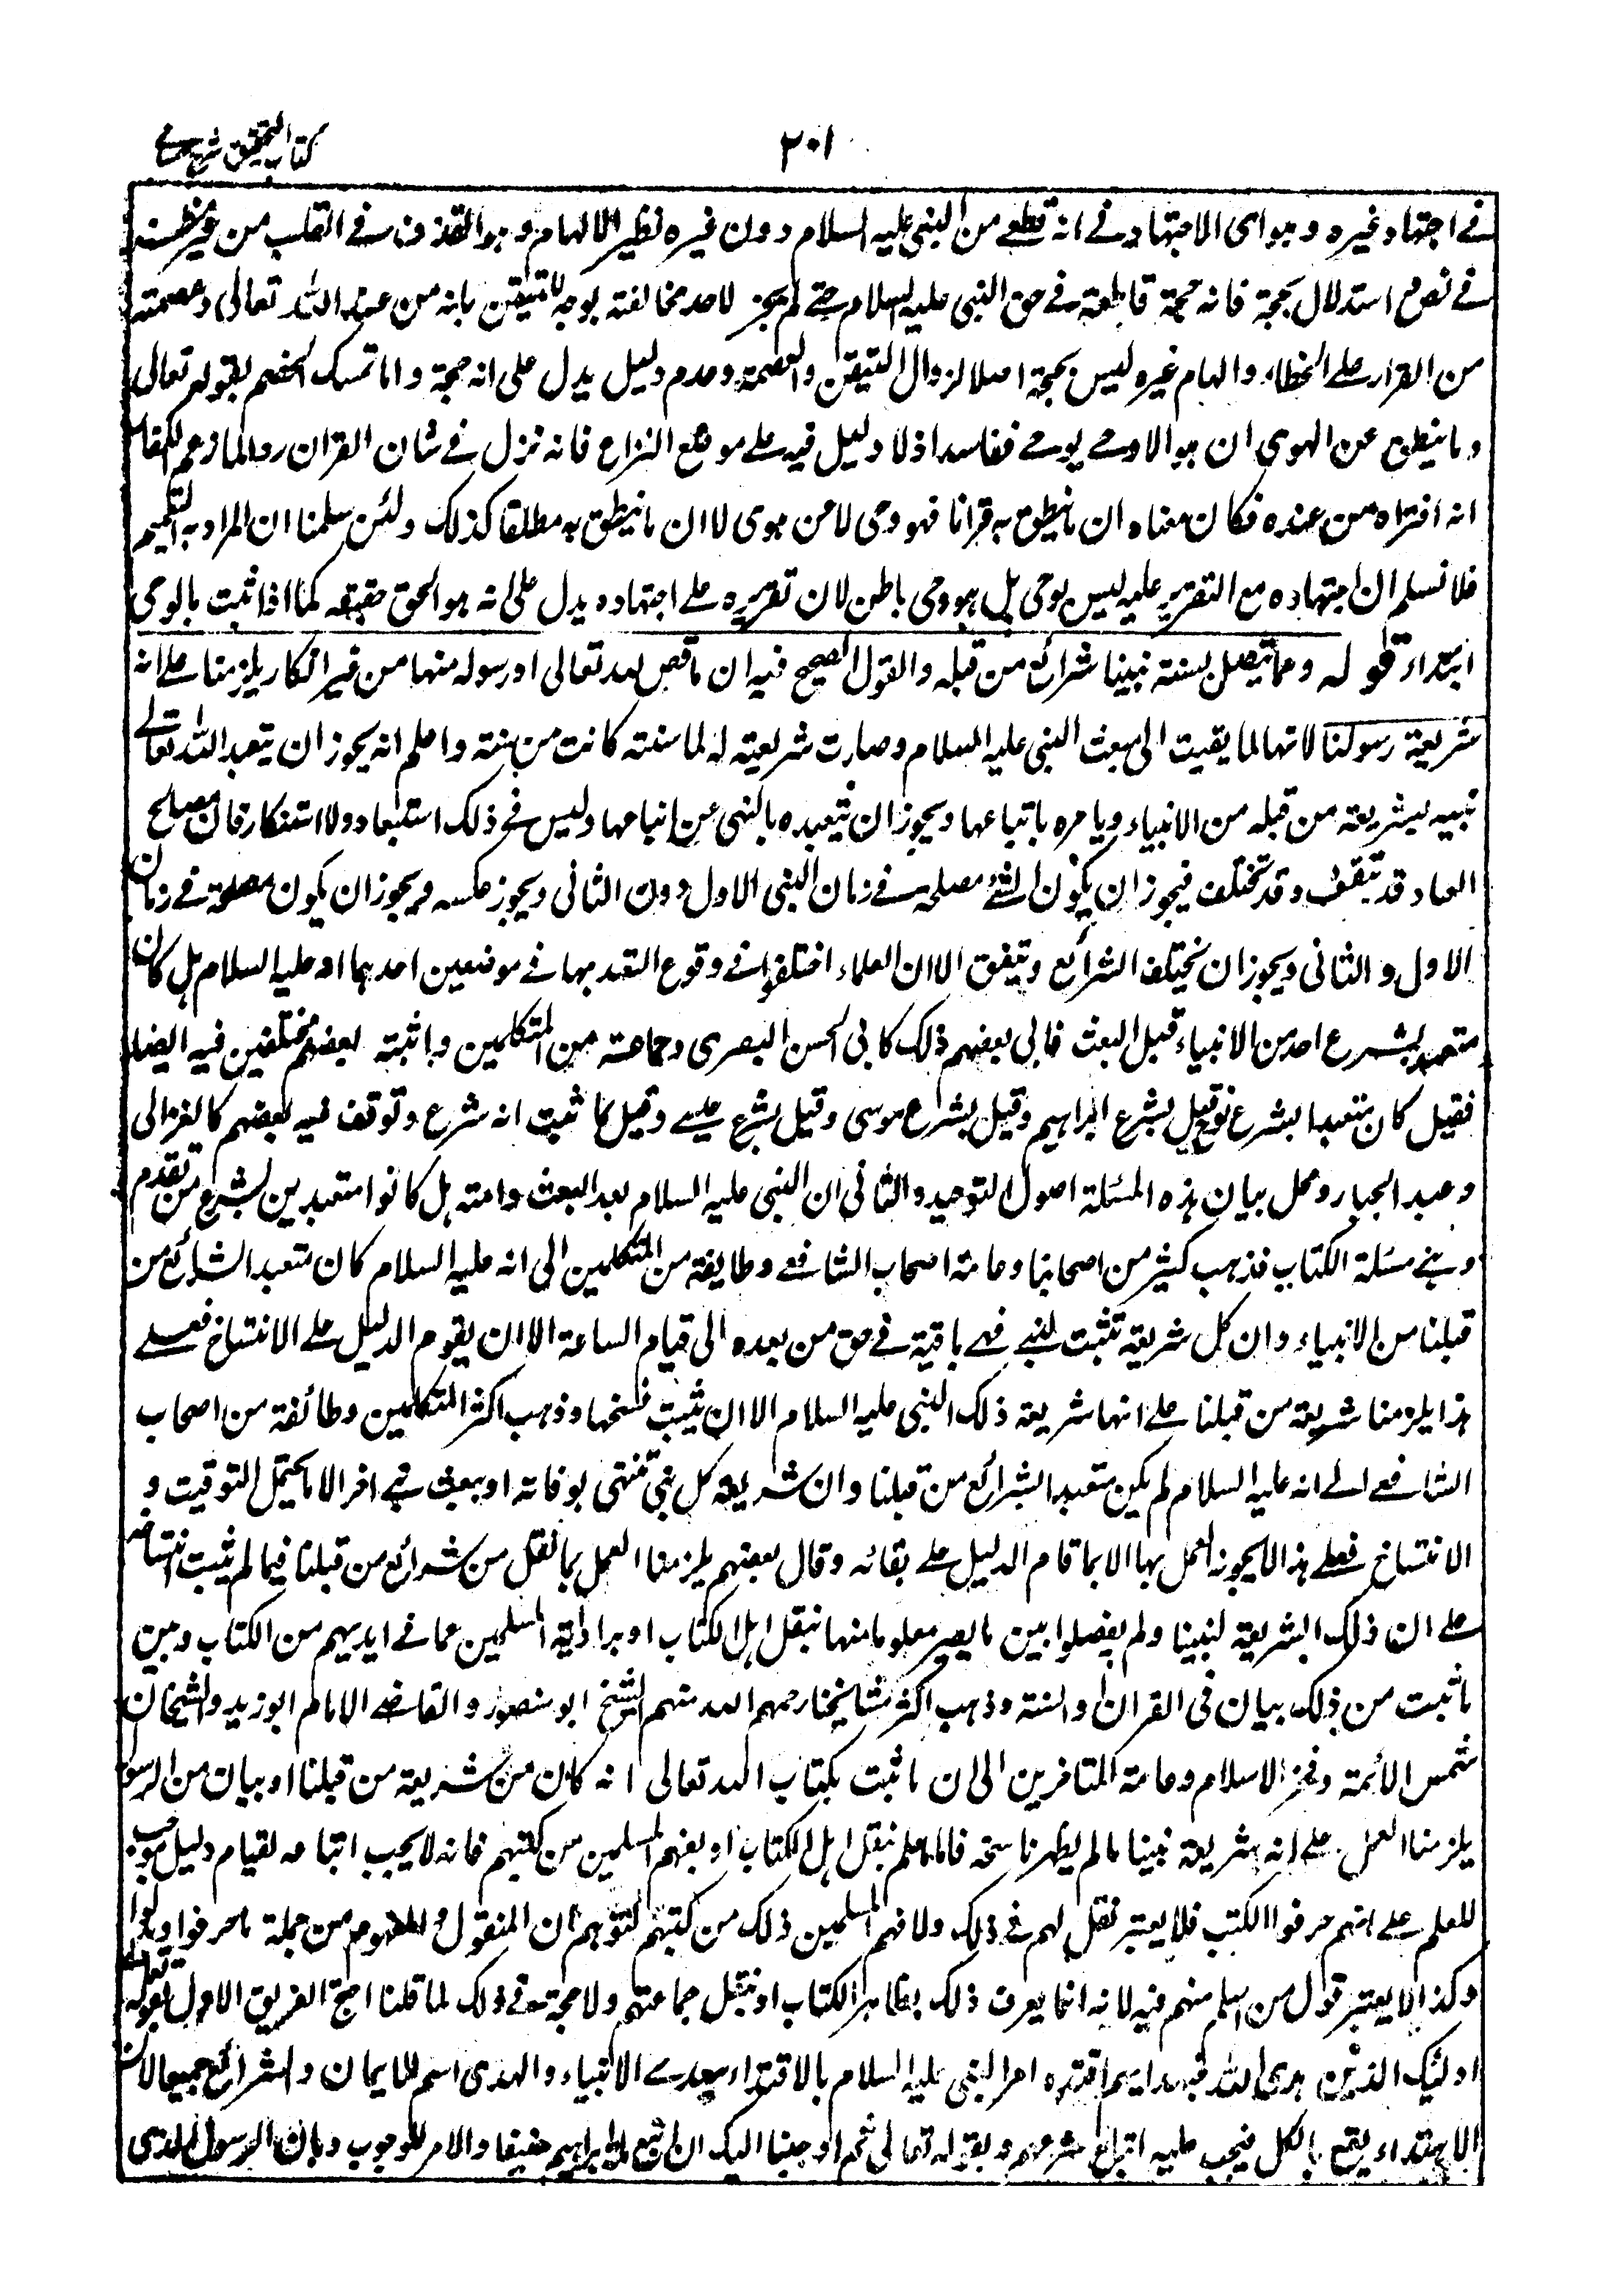 ٢٠١
كتاب التحقيق شرح حسامي
في اجتهاد غيره وهو اى الاجتهاد في انه قطعي من النبي عليه السلام دون غيره نظير الالهام وهو القذف في القلب من غير نظر
في نص واستدلال بحجة فانه حجة قاطعة في حق النبي عليه السلام حتى لم يجز لاحد مخالفته بوجه للتيقن بانه من عند الله تعالى وعصمته
من القرار على الخطاء والهام غيره ليس بحجة اصلا لزوال التيقن والعصمة وعدم دليل يدل على انه حجة واما تمسك الخصم بقوله تعالى
وما ينطق عن الهوى ان هو الا وحي يوحى ففاسد اذ لا دليل فيه على موضع النزاع فانه نزل في شان القران ردا لما زعم الكفار
انه افتراه من عنده فكان معناه ان ما ينطق به قرانا فهو وحى لا من هوى لا ان ما ينطق به مطلقا كذلك ولئن سلمنا ان المراد به التعميم
فلا نسلم ان اجتهاده مع التقرير عليه ليس بوحى بل هو وحى باطن لان تقريره على اجتهاده يدل على انه هو الحق حقيقة كما اذا ثبت بالوحى
ابتداء قوله ومما يتصل بسنة نبينا شرائع من قبله والقول الصحيح فيه ان ما قص الله تعالى او رسوله منها من غير انكار يلزمنا على انه
شريعة رسولنا لانها لما بقيت الى مبعث النبي عليه السلام وصارت شريعة له لما سنته كانت من سنته واعلم انه يجوز ان يتعبد الله تعالى
نبيه بشريعة من قبله من الانبياء ويامره باتباعها ويجوز ان يتعبده بالنهى عن اتباعها وليس في ذلك استبعاد ولا استنكار فان مصالح
العباد قد تتفق وقد تختلف فيجوز ان يكون الشئ مصلحة في زمان النبي الاول دون الثانى ويجوز عكسه ويجوز ان يكون مصلحة في زمان
الاول والثانى ويجوز ان يختلف الشرائع وتتفق الا ان العلماء اختلفوا في وقوع التعبد بها في موضعين احدهما انه عليه السلام هل كان
متعبدا بشرع احد من الانبياء قبل البعث فابى بعضهم ذلك كابى الحسن البصرى وجماعة من المتكلمين واثبته بعضهم مختلفين فيه ايضا
فقيل كان متعبدا بشرع نوح وقيل بشرع ابراهيم وقيل بشرع موسى وقيل بشرع عيسى وقيل بما ثبت انه شرع وتوقف فيه بعضهم كالغزالى
وعبد الجبار ومحل بيان هذه المسئلة اصول التوحيد والثانى ان النبي عليه السلام بعد البعث وامته هل كانوا متعبدين بشرع من تقدم
وهى مسئلة الكتاب فذهب كثير من اصحابنا وعامة اصحاب الشافعي وطايفة من المتكلمين الى انه عليه السلام كان متعبدا بشرائع من
قبلنا من الانبياء وان كل شريعة تثبت لنبي فهي باقية في حق من بعده الى قيام الساعة الا ان يقوم الدليل على الانتساخ فعلى
هذا يلزمنا شريعة من قبلنا على انها شريعة ذلك النبي عليه السلام الا ان ثبت نسخها وذهب اكثر المتكلمين وطائفة من اصحاب
الشافعي الى انه عليه السلام لم يكن متعبدا بشرائع من قبلنا وان شريعة كل نبي تنتهى بوفاته او ببعث نبي اخر الا ما يحتمل التوقيت و
الانتساخ فعلى هذا لا يجوز العمل بها الا بما قام الدليل على بقائه وقال بعضهم يلزمنا العمل بما نقل من شرائع من قبلنا فيما لم يثبت انتساخه
على ان ذلك الشريعة لنبينا ولم يفصلوا بين ما يصير معلوما منها بنقل اهل الكتاب او برواية المسلمين عما في ايديهم من الكتاب وبين
ما ثبت من ذلك ببيان في القران والسنة وذهب اكثر مشايخنا رحمهم الله منهم الشيخ ابو منصور والقاضي الامام ابو زيد والشيخان
شمس الائمة وفخر الاسلام وعامة المتاخرين الى ان ما ثبت بكتاب الله تعالى انه كان من شريعة من قبلنا او ببيان من الرسول
يلزمنا العمل على انه شريعة نبينا ما لم يظهر ناسخه فاما ما علم بنقل اهل الكتاب او بفهم المسلمين من كتبهم فانه لا يجب اتباعه لقيام دليل موجب
للعلم على انهم حرفوا الكتب فلا يعتبر نقلهم في ذلك ولا فهم المسلمين ذلك من كتبهم لتوهم ان المنقول والمفهوم من جملة ما حرفوا وبدلوا
وكذا لا يعتبر قول من اسلم منهم فيه لانه انما يعرف ذلك بظاهر الكتاب او بنقل جماعتهم ولا حجة في ذلك لما قلنا احتج الفريق الاول بقوله تعالى
اولئك الذين هدى الله فبهداهم اقتده امر النبي عليه السلام بالاقتداء بهدى الانبياء والهدى اسم للايمان والشرائع جميعا لان
الاهتداء يقع بالكل فيجب عليه اتباع شرعهم وبقوله تعالى ثم اوحينا اليك ان اتبع ملة ابراهيم حنيفا والامر للوجوب وبان الرسول الذى